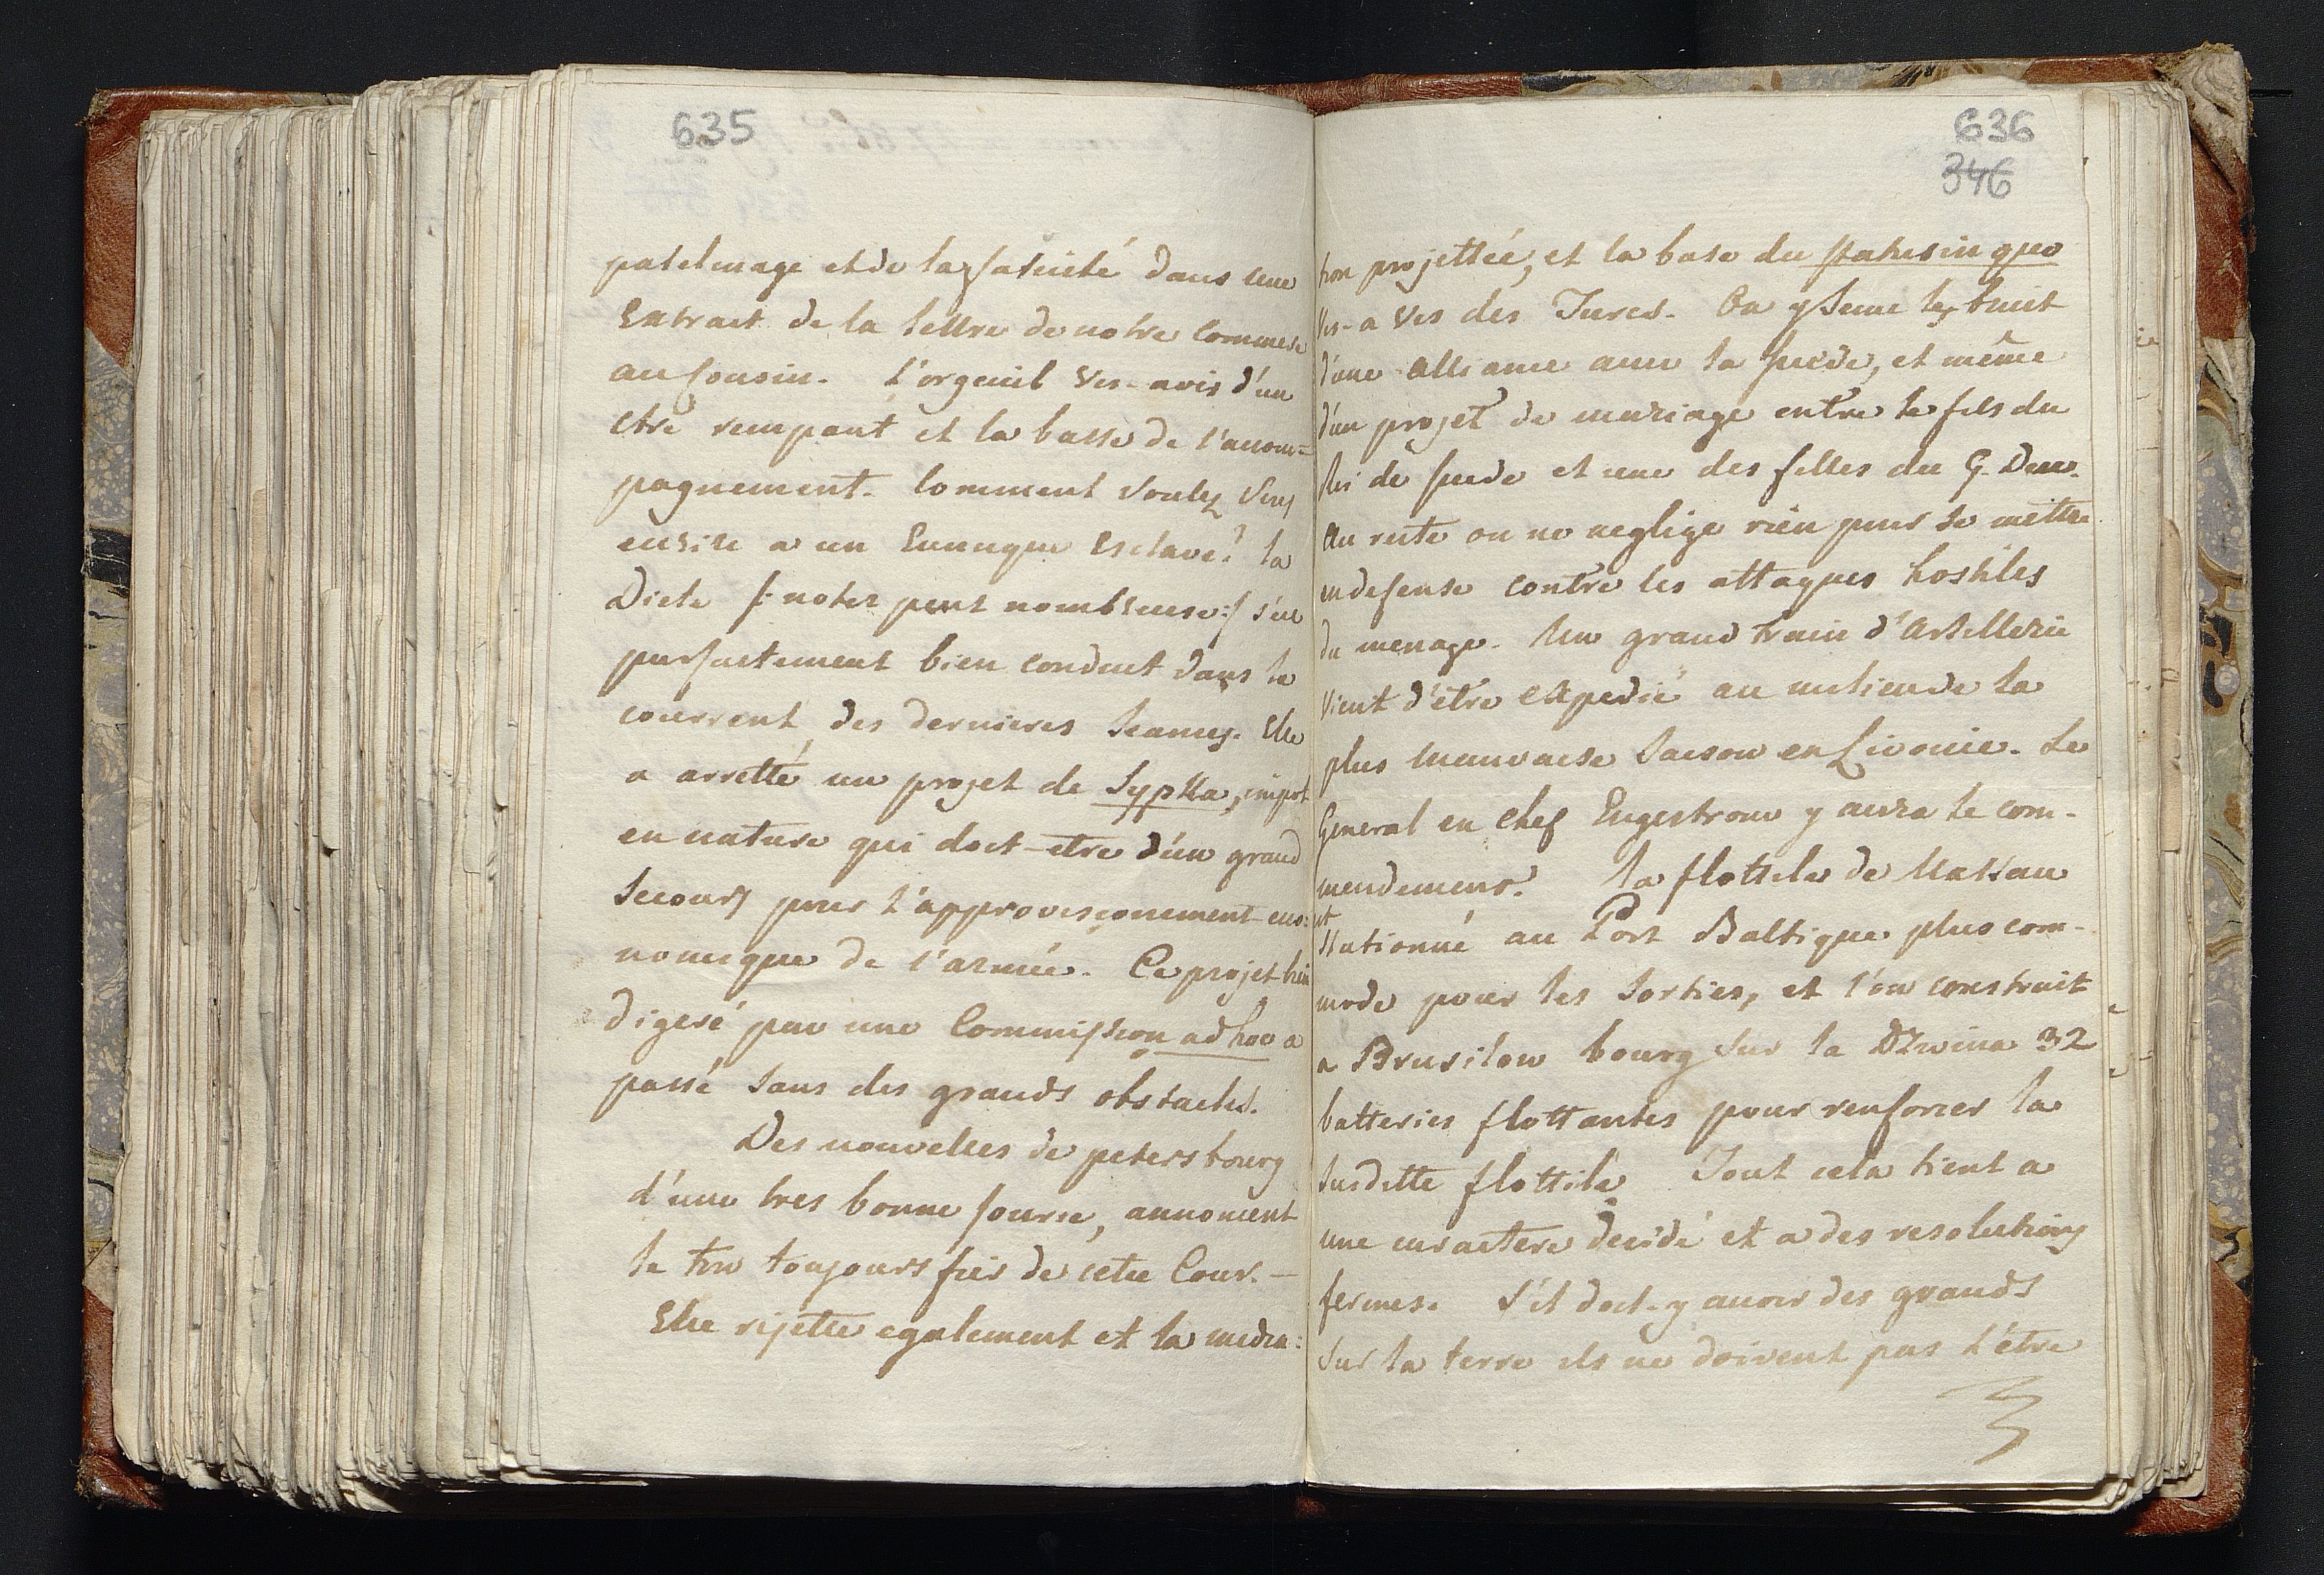 635
patelinage et de la fatuité dans une
Extrait de la lettre de notre Commese
au Cousin. L'orgeuil Vis-avis d'un
etre rempant et la basse de l'accom=
pagnement. Comment voulez Vous
ecrire a un Eunuque Esclave? la
Diete /: notez peut nombreuse :/ s'est
parfaitement bien conduit dans le
courrent des dernieres Seances. Elle
a arretté un projet de Sypka, impot
en nature qui doit-etre d'un grand
Secours pour l'approvisionement eco=
nomique de l'armée. Ce projet bien
digeré par une Commission ad hoc a
passé Sans des grands obstacles.
Des nouvelles de petersbourg
d'une tres bonne Sourse, annoncent
le ton toujours fier de cette Cour. —
Elle rejette egalement et la media=
636
346
tion projettée, et la base du status in quo
Vis-a Vis des Turcs. On y Seme le bruit
d'une alliance avec la Suede, et même
d'un projet de mariage entre le fils du
Roi de Suede et une des filles du G. Duc.
Au reste on ne neglige rien pour se mettre
en defense contre les attaques hostiles
du menage. Un grand train d'Artillerie
vient d'être expedié au milieu de la
plus mauvaise Saison en Livonie. Le
General en chef Engestrom y aura le com-
mendement. La flottile de Nassau
est
Stationné au Port Baltique plus com-
mode pour les Sorties, et l'on construit
a Brusilow bourg Sur la Dzwina 32
batteries flottantes pour renforcer la
Susditte flottile. Tout cela tient a
une caractere decidé et a des resolutions
fermes. S'il doit-y avoir des grands
Sur la terre ils ne doivent pas l'être